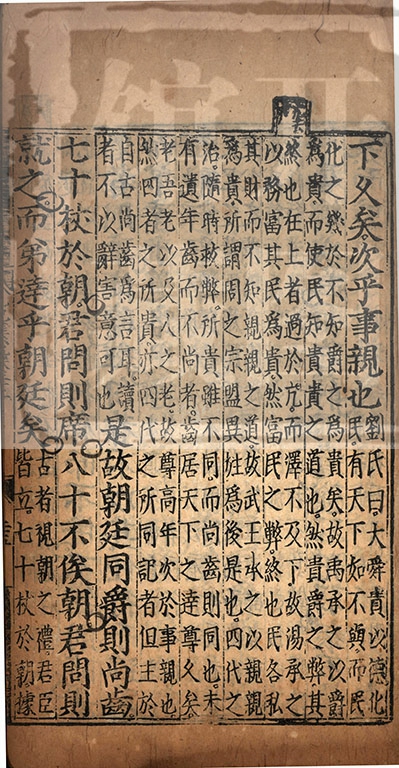 下久矣次乎事親也
劉氏曰。大舜貴以德化
民。有天下如不與。而民
化之。幾於不知爵之為貴矣。故禹承之以爵
為貴。而使民知貴貴之道也。然貴爵之弊。其
終也。在上者過於亢。而澤不及下。故湯承之
以務富其民為貴。然富民之弊。終也民各私
其財而不知親親之道。故武王承之以親親
為貴。所謂周之宗盟。異姓為後是也。四代之
治。隨時救弊。所貴雖不同。而尚齒則同也。未
有遺年齒而不尚者。齒居天下之達尊久矣。
老吾老以及人之老。故尊高年次於事親也
然四者之所貴。亦四代之所同。記者但主於
自古尚齒為言耳。讀
者不以辭害意可也
是故朝廷同爵則尚齒。
七十杖於朝。君問則席。八十不俟朝。君問則
就之。而弟達乎朝廷矣
古者視朝之禮。君臣
皆立。七十杖於朝。據